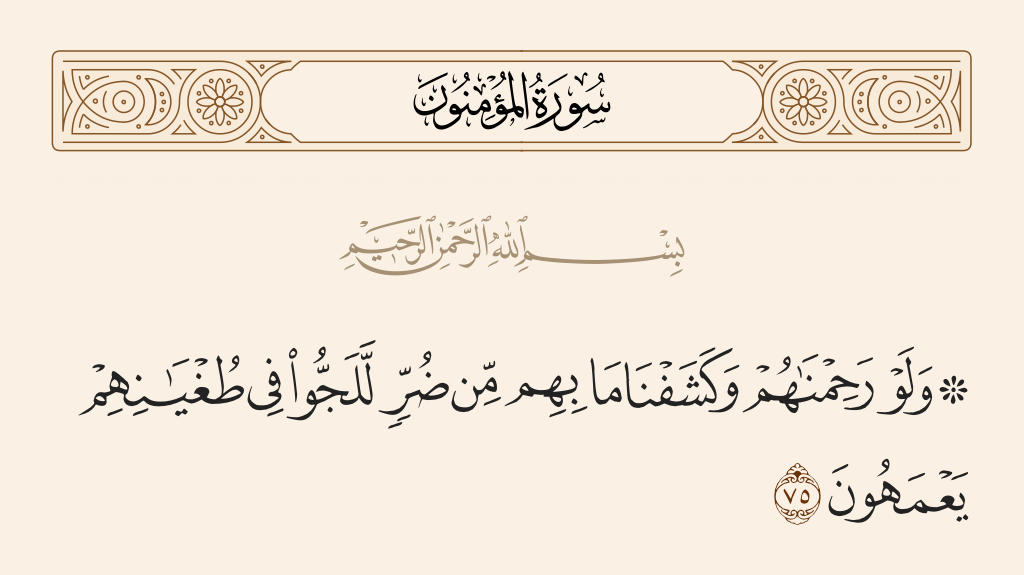 سُورَةُ المُؤْمِنُونَ
بِسْمِ ٱللَّهِ ٱلرَّحْمَٰنِ ٱلرَّحِيمِ
۞ وَلَوْ رَحِمْنَٰهُمْ وَكَشَفْنَا مَا بِهِم مِّن ضُرٍّ لَّلَجُّوا۟ فِى طُغْيَٰنِهِمْ
يَعْمَهُونَ ٧٥